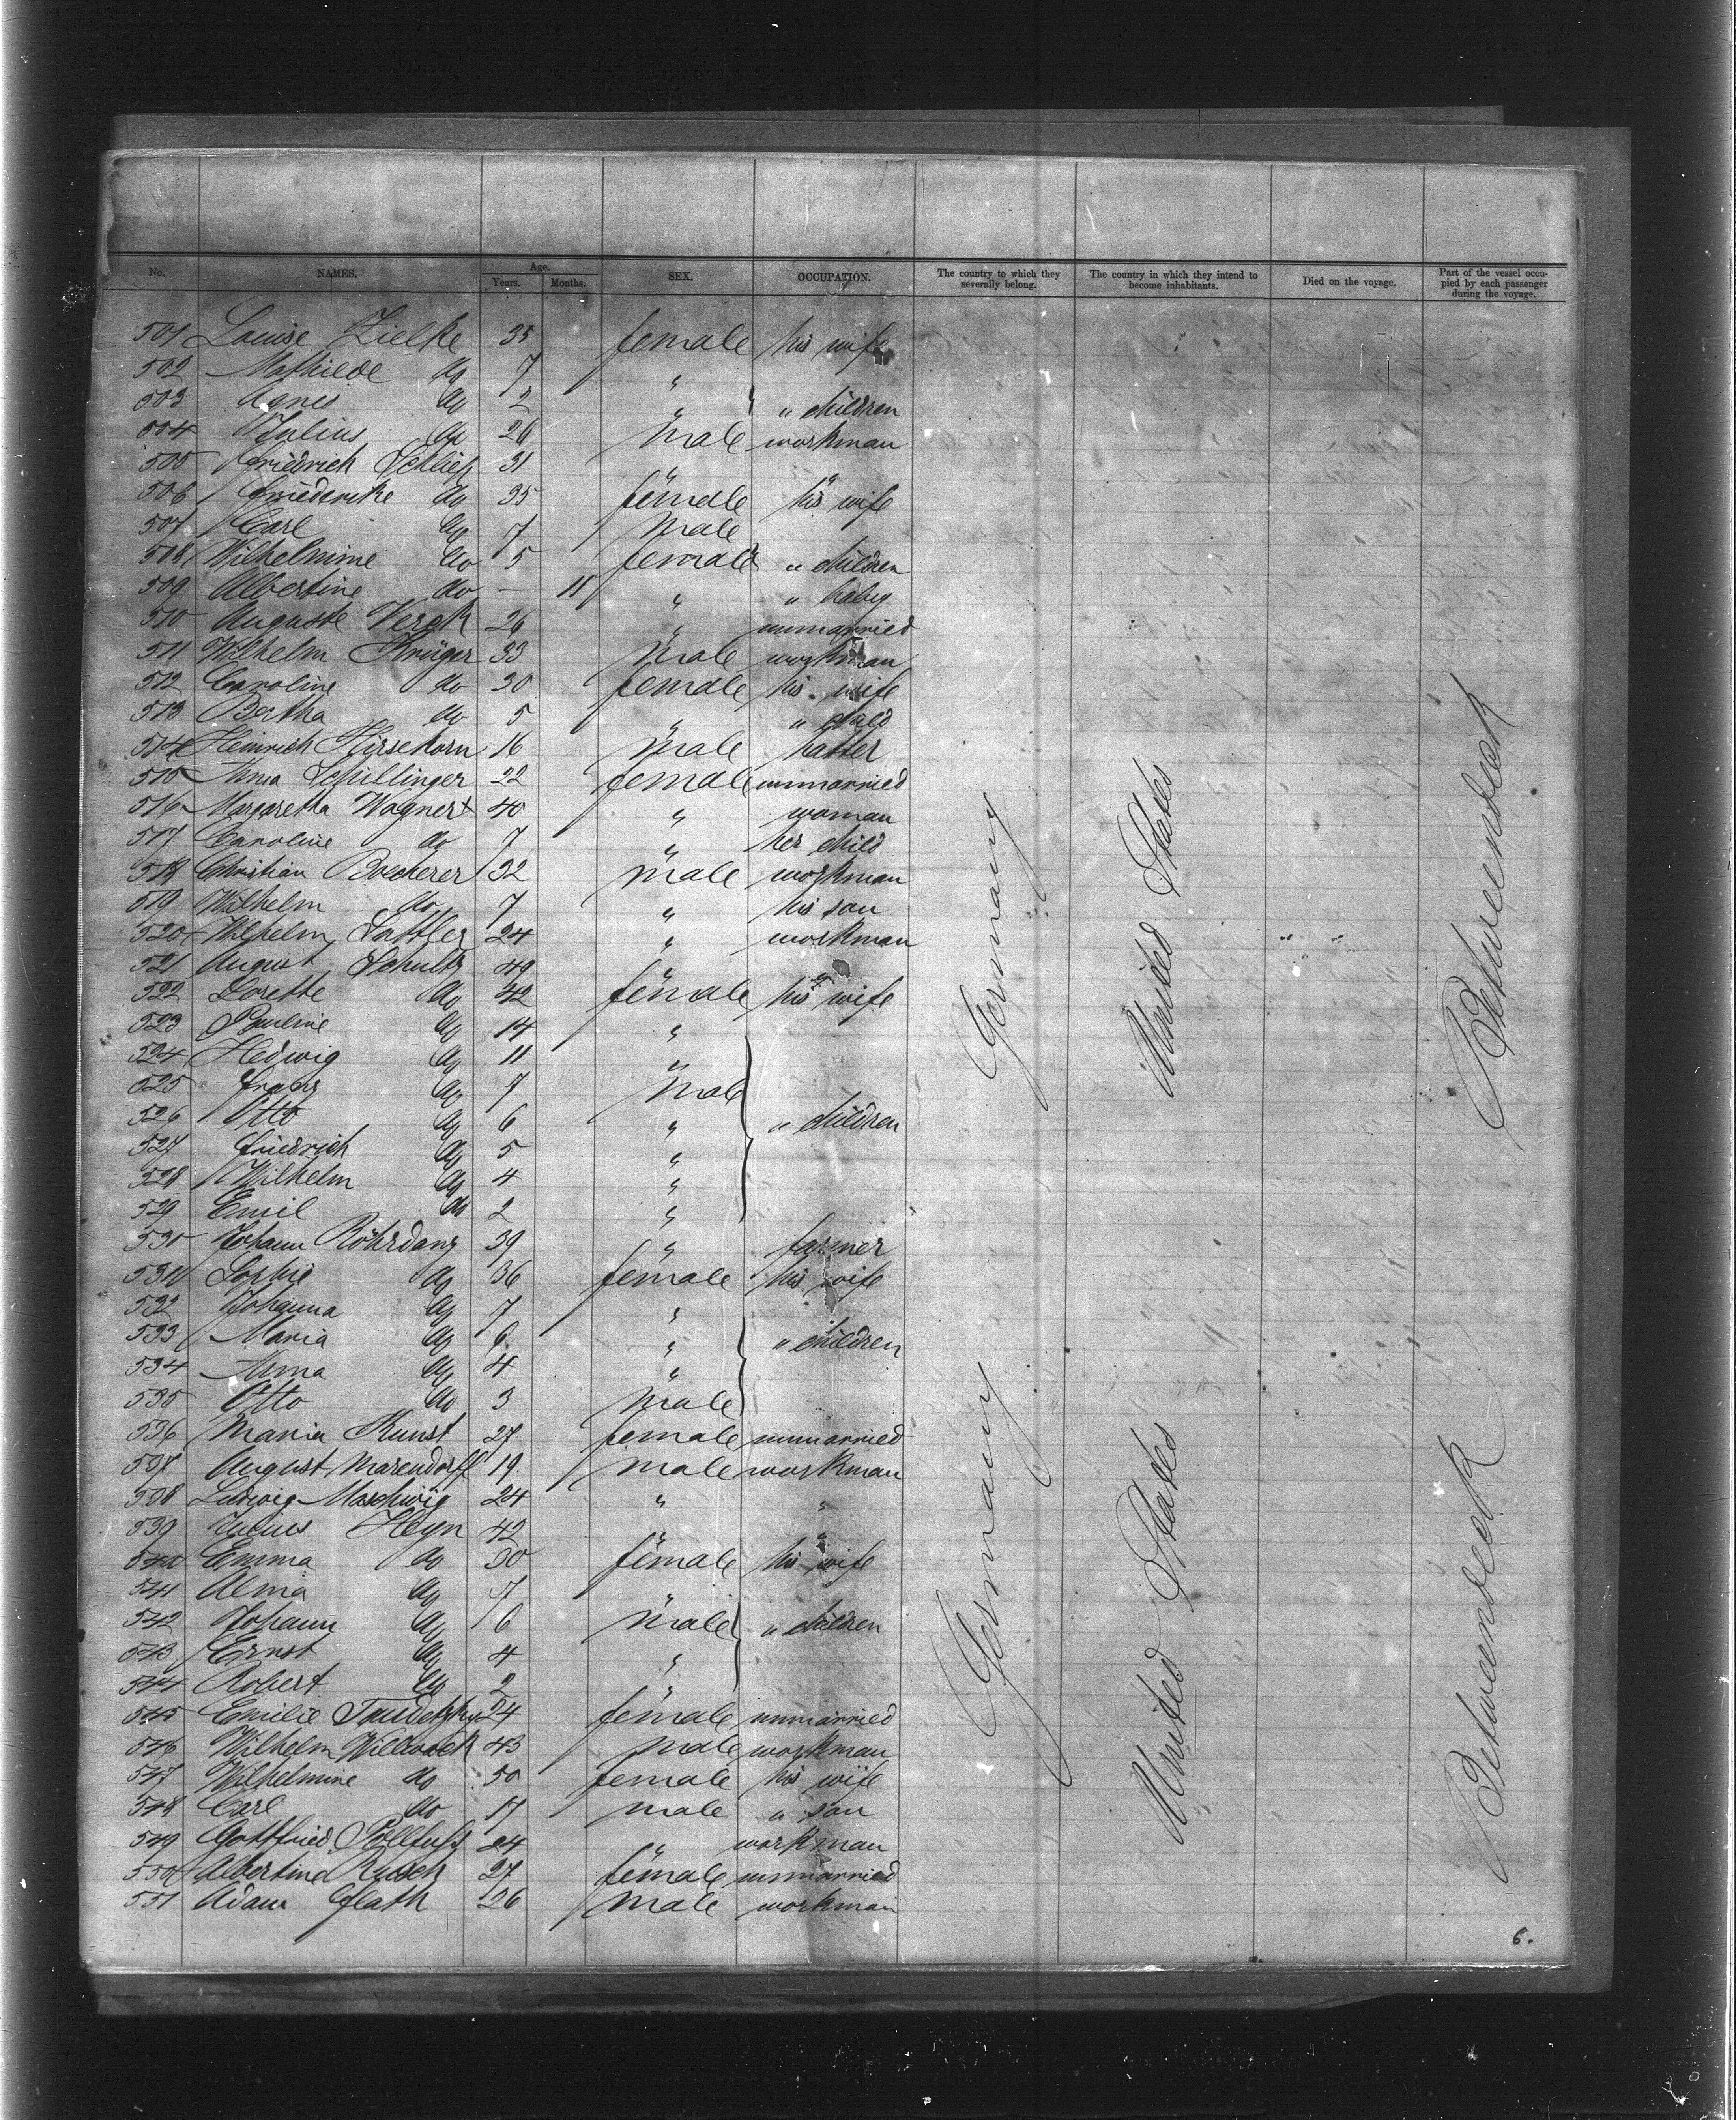 No. NAMES. Age. Years. Months. SEX. OCCUPATION. The country to which they severally belong. The country in which they intend to become inhabitants. Died on the voyage. Part of the vessel occupied by each passenger during the voyage.
501 Louise Zielke 35 female his wife
502 Mathilde do 7 "
503 Agnes do 2 " " children
504 Julius do 26 male workman
505 Friedrich Schlieh 31 " "
506 Friederike do 35 female his wife
507 Carl do 7 male
508 Wilhelmine do 5 female " children
509 Albertine do — 11 " " baby
510 Auguste Verch 26 " unmarried
511 Wilhelm Krüger 33 male workman
512 Caroline do 30 female his wife
513 Bertha do 5 " " child
514 Heinrich Hirsekorn 16 male hatter
515 Anna Schillinger 22 female unmarried
516 Margaretha Wagner 40 " woman
517 Caroline do 7 " her child
518 Christian Boecherer 32 male workman
519 Wilhelm do 7 " his son
520 Wilhelm Sattler 24 " workman
521 August Schultz 49 " "
522 Dorette do 42 female his wife
523 Pauline do 14 "
524 Hedwig do 11 "
525 Franz do 7 male
526 Otto do 6 " " children
527 Friedrich do 5 "
528 Wilhelm do 4 "
529 Emil do 2 "
530 Johann Röhrdanz 39 " farmer
531 Sophie do 36 female his wife
532 Johanna do 7 "
533 Maria do 6 " " children
534 Anna do 4 "
535 Otto do 3 male
536 Maria Kunst 27 female unmarried
537 August Marendorff 19 male workman
538 Ludwig Maschwig 24 " "
539 Julius Heyn 42 " "
540 Emma do 30 female his wife
541 Alma do 7 "
542 Johann do 6 male " children
543 Ernst do 4 "
544 Robert do 2 "
545 Emilie 24 female unmarried
546 Wilhelm Willwock 43 male workman
547 Wilhelmine do 50 female his wife
548 Carl do 17 male " son
549 Gottfried Pollfusz 24 " workman
550 Albertine 27 female unmarried
551 Adam Glath 26 male workman
Germany
Germany
United States
United States
Betweendeck
Betweendeck
6.